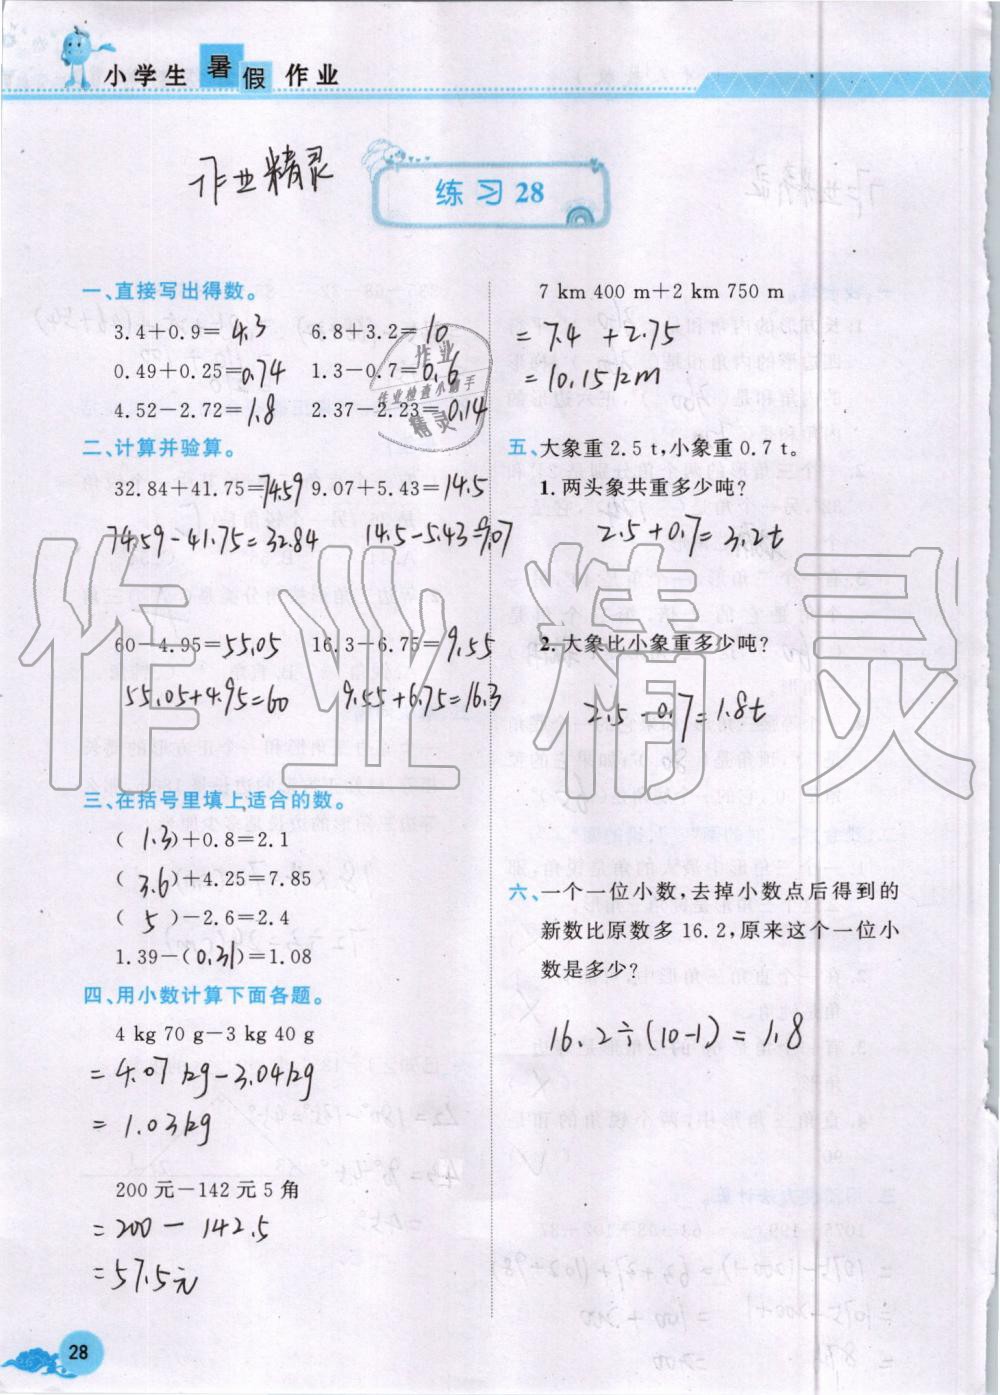 小学生暑假作业
作业精灵
练习28
一、直接写出得数。
3.4+0.9= 4.3 6.8+3.2= 10
0.49+0.25=0.74 1.3-0.7=0.6
4.52-2.72=1.8 2.37-2.23=0.14
作业
作业检查小助手
精灵
二、计算并验算。
32.84+41.75=74.59 9.07+5.43=14.5
74.59-41.75=32.84 14.5-5.43=9.07
60-4.95=55.05 16.3-6.75=9.55
55.05+4.95=60 9.55+6.75=16.3
三、在括号里填上适合的数。
( 1.3 )+0.8=2.1
( 3.6 )+4.25=7.85
( 5 )-2.6=2.4
1.39-( 0.31 )=1.08
四、用小数计算下面各题。
4 kg 70 g-3 kg 40 g
= 4.07kg-3.04kg
= 1.03kg
200元-142元5角
=200-142.5
=57.5元
7 km 400 m+2 km 750 m
= 7.4+2.75
= 10.15km
五、大象重2.5 t,小象重0.7 t。
1. 两头象共重多少吨?
2.5+0.7=3.2t
2. 大象比小象重多少吨?
2.5-0.7=1.8t
六、一个一位小数,去掉小数点后得到的
新数比原数多16.2,原来这个一位小
数是多少?
16.2÷(10-1)=1.8
作业精灵
28